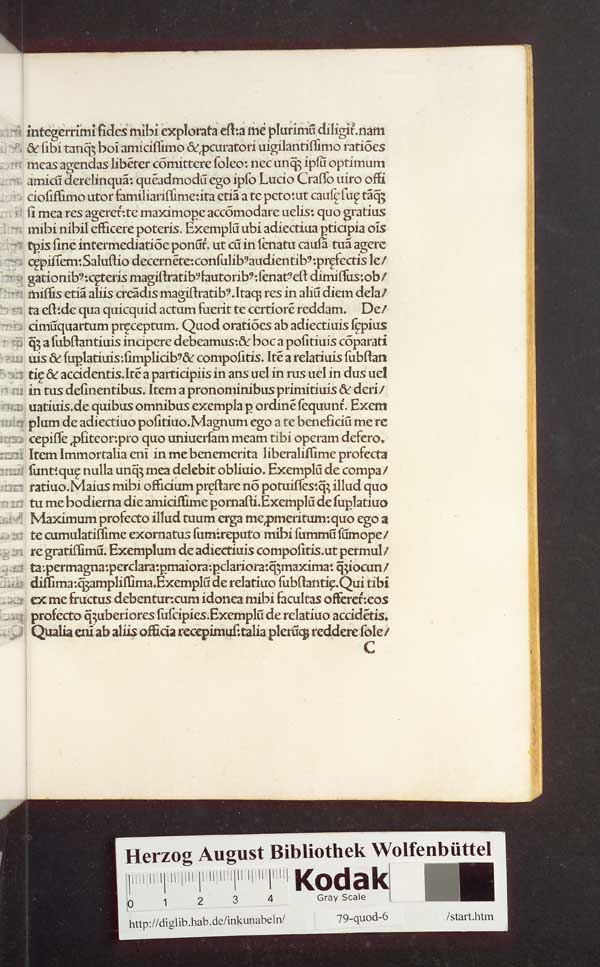 integerrimi fides mihi explorata est:a me plurimũ diligit᷑.nam
& sibi tanq̃ boĩ amicissimo &,pcuratori uigilantissimo ratiões
meas agendas libẽter cõmittere soleo: nec unq̃ ipsũ optimum
amicũ derelinquã: quẽadmodũ ego ipso Lucio Crasso uiro offi
ciosissimo utor familiarissime:ita etiã a te peto:ut causę suę tãq̃
si mea res ageret᷑:te maximope accõmodare uelis: quo gratius
mihi nihil efficere poteris. Exemplũ ubi adiectiua p̱ticipia oĩs
tp̱is sine intermediatiõe ponũt᷑. ut cũ in senatu causã tuã agere
cępissem:Salustio decernẽte:consulibꝰaudientibꝰ:pręfectis le/
gationibꝰ:cęteris magistratibꝰfautoribꝰ:senatꝰest dimissus:ob/
missis etiã aliis creãdis magistratibꝰ.Itaq; res in aliũ diem dela/
ta est:de qua quicquid actum fuerit te certiorẽ reddam. De/
cimũquartum pręceptum. Quod oratiões ab adiectiuis sępius
q̃ a substantiuis incipere debeamus:& hoc a positiuis cõparati
uis & suplatiuis:simplicibꝰ& compositis. Itẽ a relatiuis substan
tię & accidentis.Itẽ a participiis in ans uel in rus uel in dus uel
in tus desinentibus. Item a pronominibus primitiuis & deri/
uatiuis.de quibus omnibus exempla p ordinẽ sequunt᷑. Exem
plum de adiectiuo positiuo.Magnum ego a te beneficiũ me re
cepisse ,pfiteor:pro quo uniuersam meam tibi operam defero.
Item Immortalia enĩ in me benemerita liberalissime profecta
sunt:quę nulla unq̃ mea delebit obliuio. Exemplũ de compa/
ratiuo.Maius mihi officium pręstare nõ potuisses:q̃ illud quo
tu me hodierna die amicissime pornasti.Exemplũ de suplatiuo
Maximum profecto illud tuum erga me,pmeritum:quo ego a
te cumulatissime exornatus sum:reputo mihi summũ sũmope/
re gratissimũ. Exemplum de adiectiuis compositis.ut permul/
ta:permagna:perclara:pmaiora:pclariora:q̃maxima: q̃iocun/
dissima:q̃amplissima.Exemplũ de relatiuo substantię.Qui tibi
ex me fructus debentur:cum idonea mihi facultas offeret᷑:eos
profecto q̃uberiores suscipies.Exemplũ de relatiuo accidẽtis.
Qualia enĩ ab aliis officia recepimus:talia plerũq; reddere sole/
C
Herzog August Bibliothek Wolfenbüttel
0 1 2 3 4
Kodak
Gray Scale
http://diglib.hab.de/inkunabeln/ 79-quod-6 /start.htm